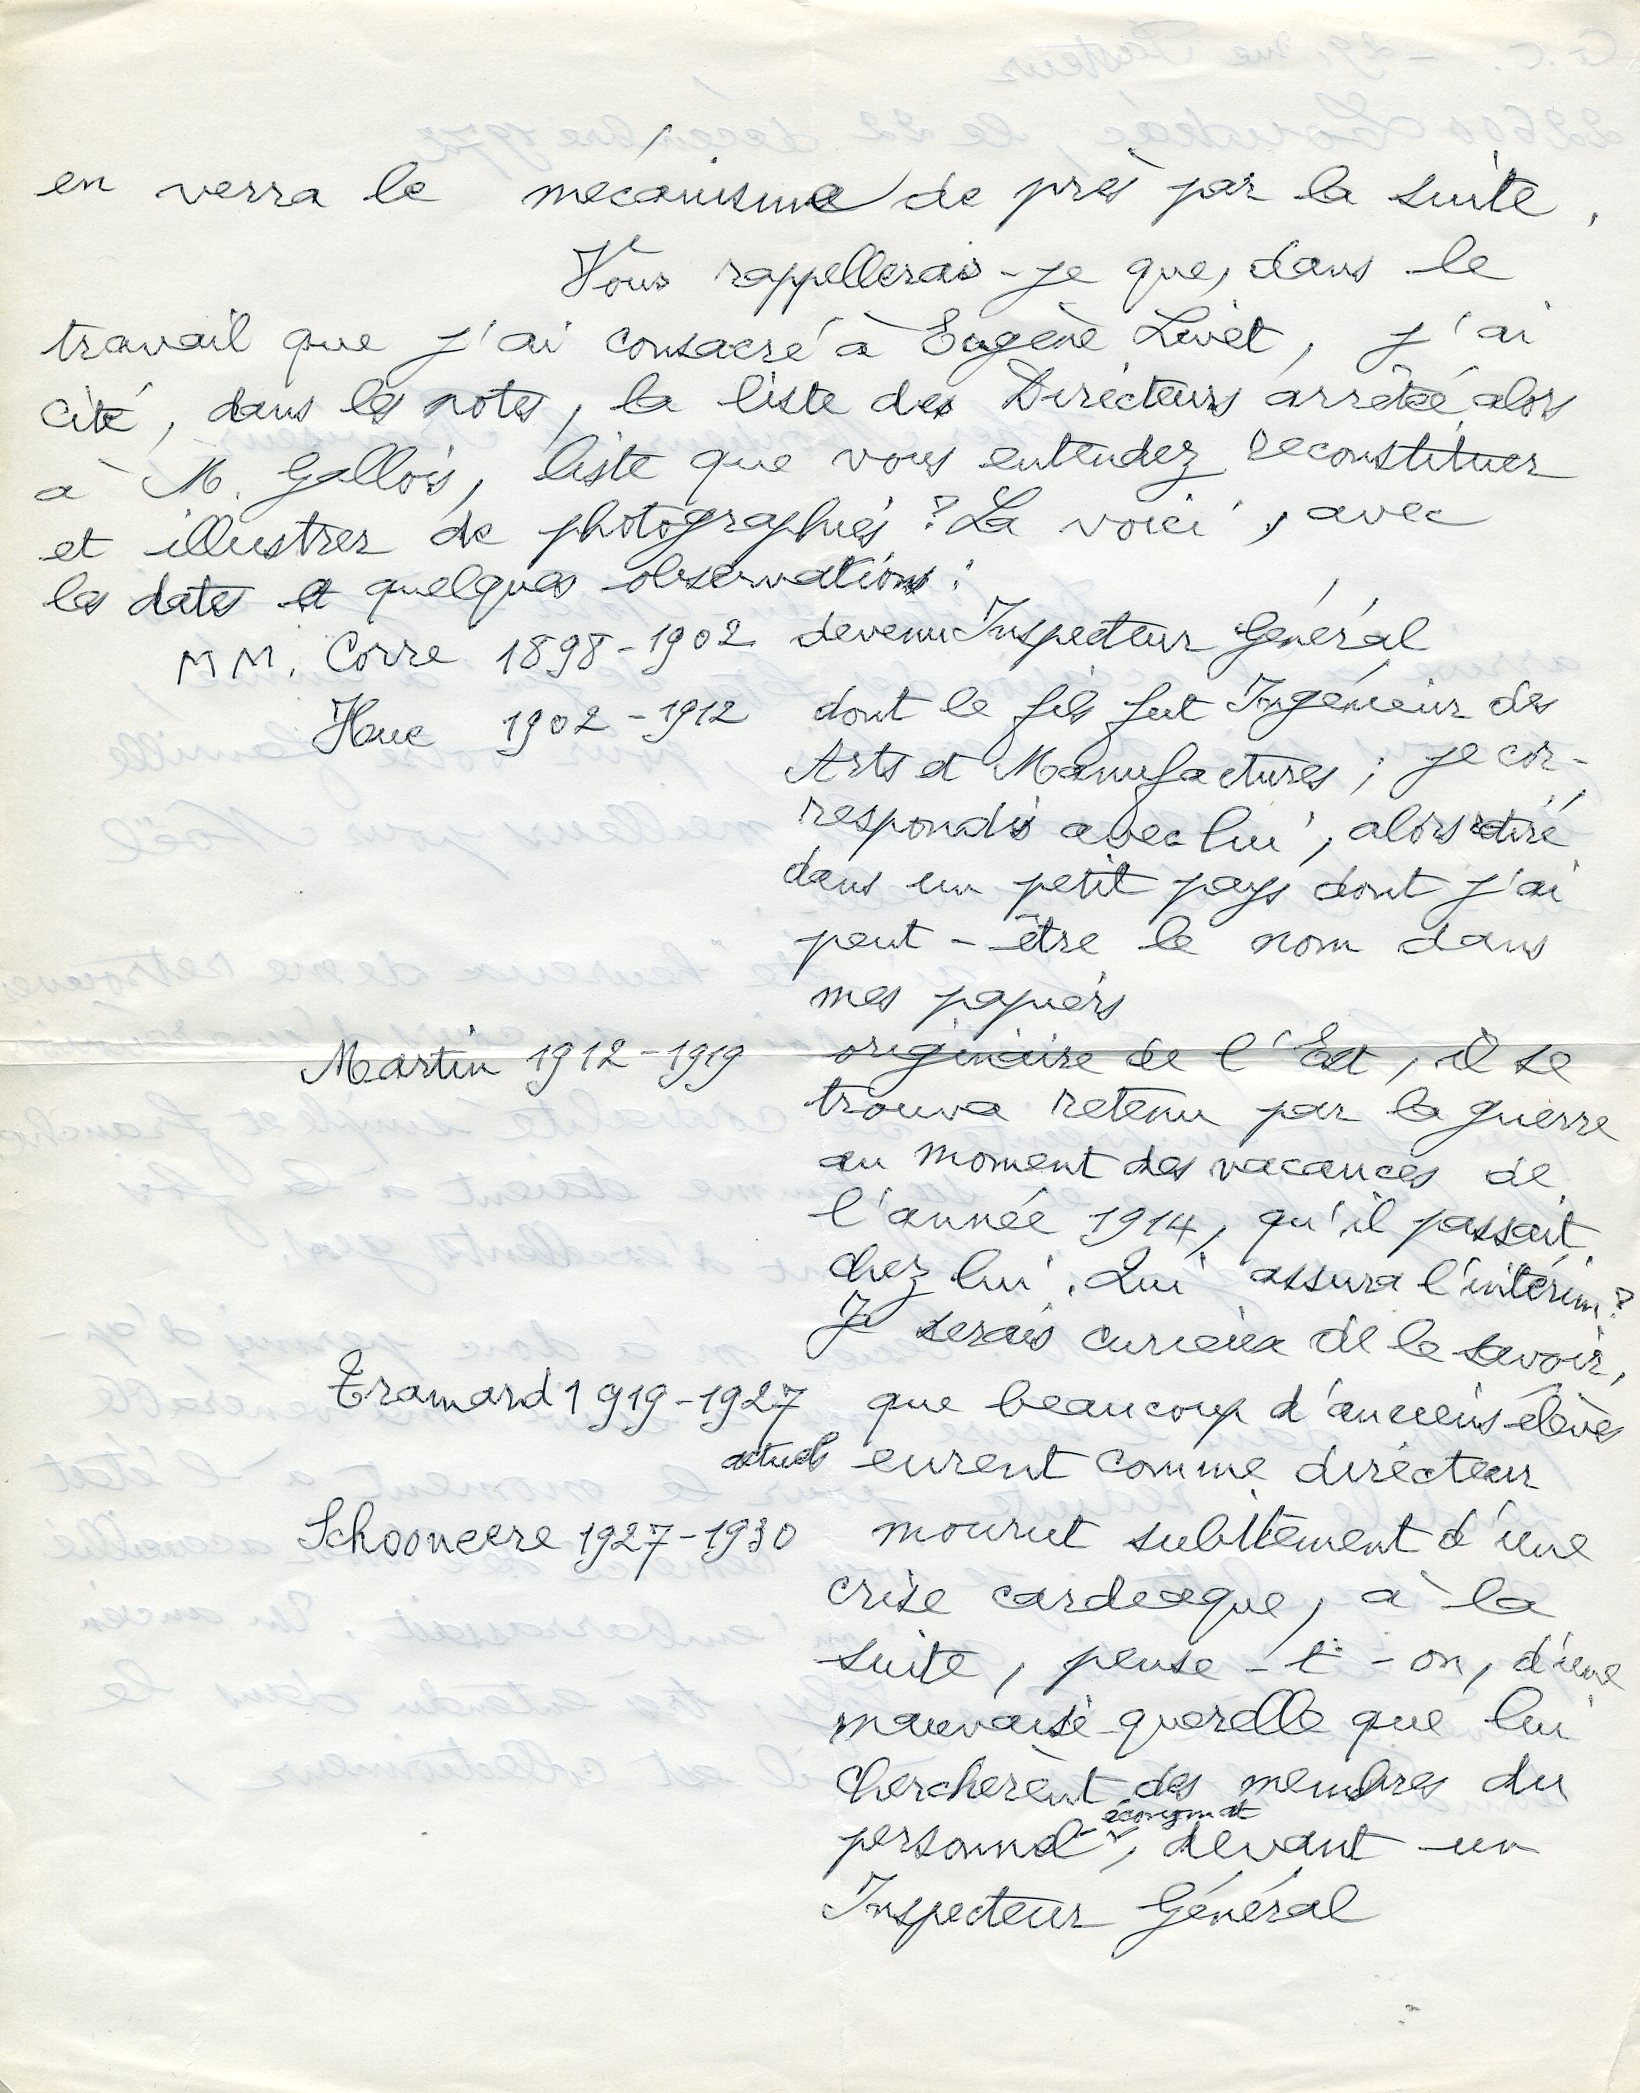 en verra le mécanisme de près par la suite.
Vous rappellerais-je que, dans le
travail que j'ai consacré à Eugène Livet, j'ai
cité, dans les notes, la liste des Directeurs arrêtée alors
à M. Gallois, liste que vous entendez reconstituer
et illustrer de photographies? La voici, avec
les dates et quelques observations:
MM. Corre 1898-1902 devenu Inspecteur Général
Huc 1902-1912 dont le fils fut Ingénieur des
Arts et Manufactures; je cor-
respondis avec lui, alors retiré
dans un petit pays dont j'ai
peut-être le nom dans
mes papiers
Martin 1912-1919 originaire de l'Est, il se
trouva retenu par la guerre
au moment des vacances de
l'année 1914, qu'il passait
chez lui. Qui assura l'intérim?
Je serais curieux de le savoir,
Tramard 1919-1927 que beaucoup d'anciens élèves
actuels eurent comme directeur
Schooneere 1927-1930 mourut subitement d'une
crise cardiaque, à la
suite, pense-t-on, d'une
mauvaise querelle que lui
cherchèrent des membres du
personnel - économat, devant un
Inspecteur Général